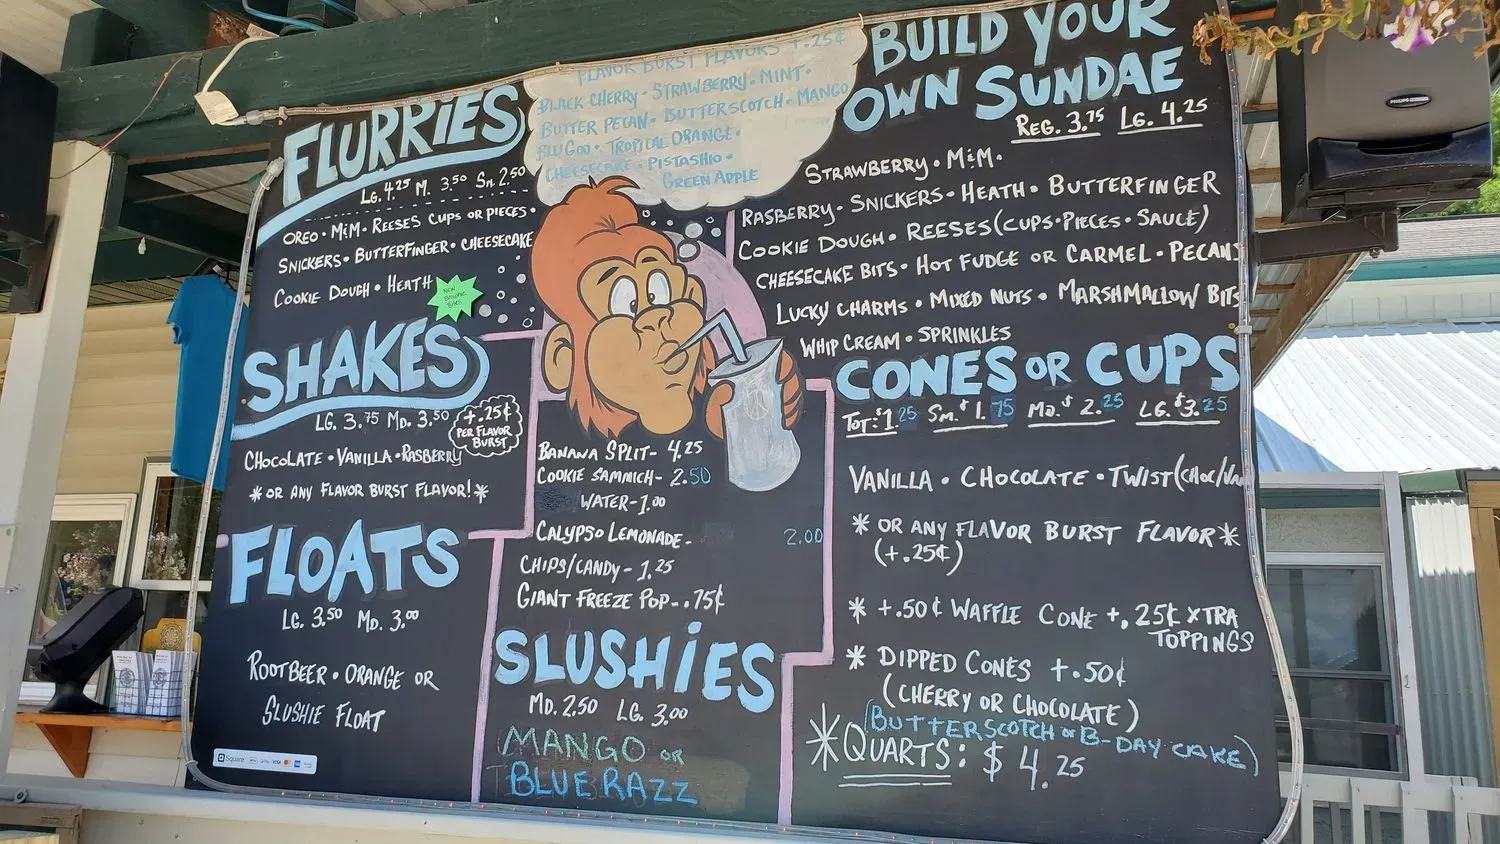 FLURRIES
LG. 4.25 M. 3.50 SM. 2.50
OREO • M&M • REESES CUPS OR PIECES •
SNICKERS • BUTTERFINGER • CHEESECAKE
COOKIE DOUGH • HEATH
NOW
BROWNIE
BITES
SHAKES
LG. 3.75 MD. 3.50
+.25¢
PER FLAVOR
BURST
CHOCOLATE • VANILLA • RASBERRY
* OR ANY FLAVOR BURST FLAVOR! *
FLOATS
LG. 3.50 MD. 3.00
ROOTBEER • ORANGE OR
SLUSHIE FLOAT
Square
VISA
FLAVOR BURST FLAVORS +.25¢
BLACK CHERRY • STRAWBERRY • MINT •
BUTTER PECAN • BUTTERSCOTCH • MANGO
BLU GOO • TROPICAL ORANGE •
CHEESECAKE • PISTASHIO •
GREEN APPLE
BANANA SPLIT - 4.25
COOKIE SAMMICH - 2.50
WATER - 1.00
CALYPSO LEMONADE - 2.00
CHIPS/CANDY - 1.25
GIANT FREEZE POP .. 75¢
SLUSHIES
MD. 2.50 LG. 3.00
MANGO OR
BLUE RAZZ
BUILD YOUR
OWN SUNDAE
REG. 3.75 LG. 4.25
STRAWBERRY • M&M •
RASBERRY • SNICKERS • HEATH • BUTTERFINGER
COOKIE DOUGH • REESES (CUPS • PIECES • SAUCE)
CHEESECAKE BITS • HOT FUDGE OR CARMEL • PECANS
LUCKY CHARMS • MIXED NUTS • MARSHMALLOW BITS
WHIP CREAM • SPRINKLES
CONES OR CUPS
TOT: $1.25 SM. $1.75 MD. $2.25 LG. $3.25
VANILLA • CHOCOLATE • TWIST (CHOC/VAN
* OR ANY FLAVOR BURST FLAVOR *
(+.25¢)
* +.50¢ WAFFLE CONE +.25¢ XTRA
TOPPINGS
* DIPPED CONES +.50¢
(CHERRY OR CHOCOLATE)
(BUTTERSCOTCH OR B-DAY CAKE)
* QUARTS: $4.25
PHILIPS